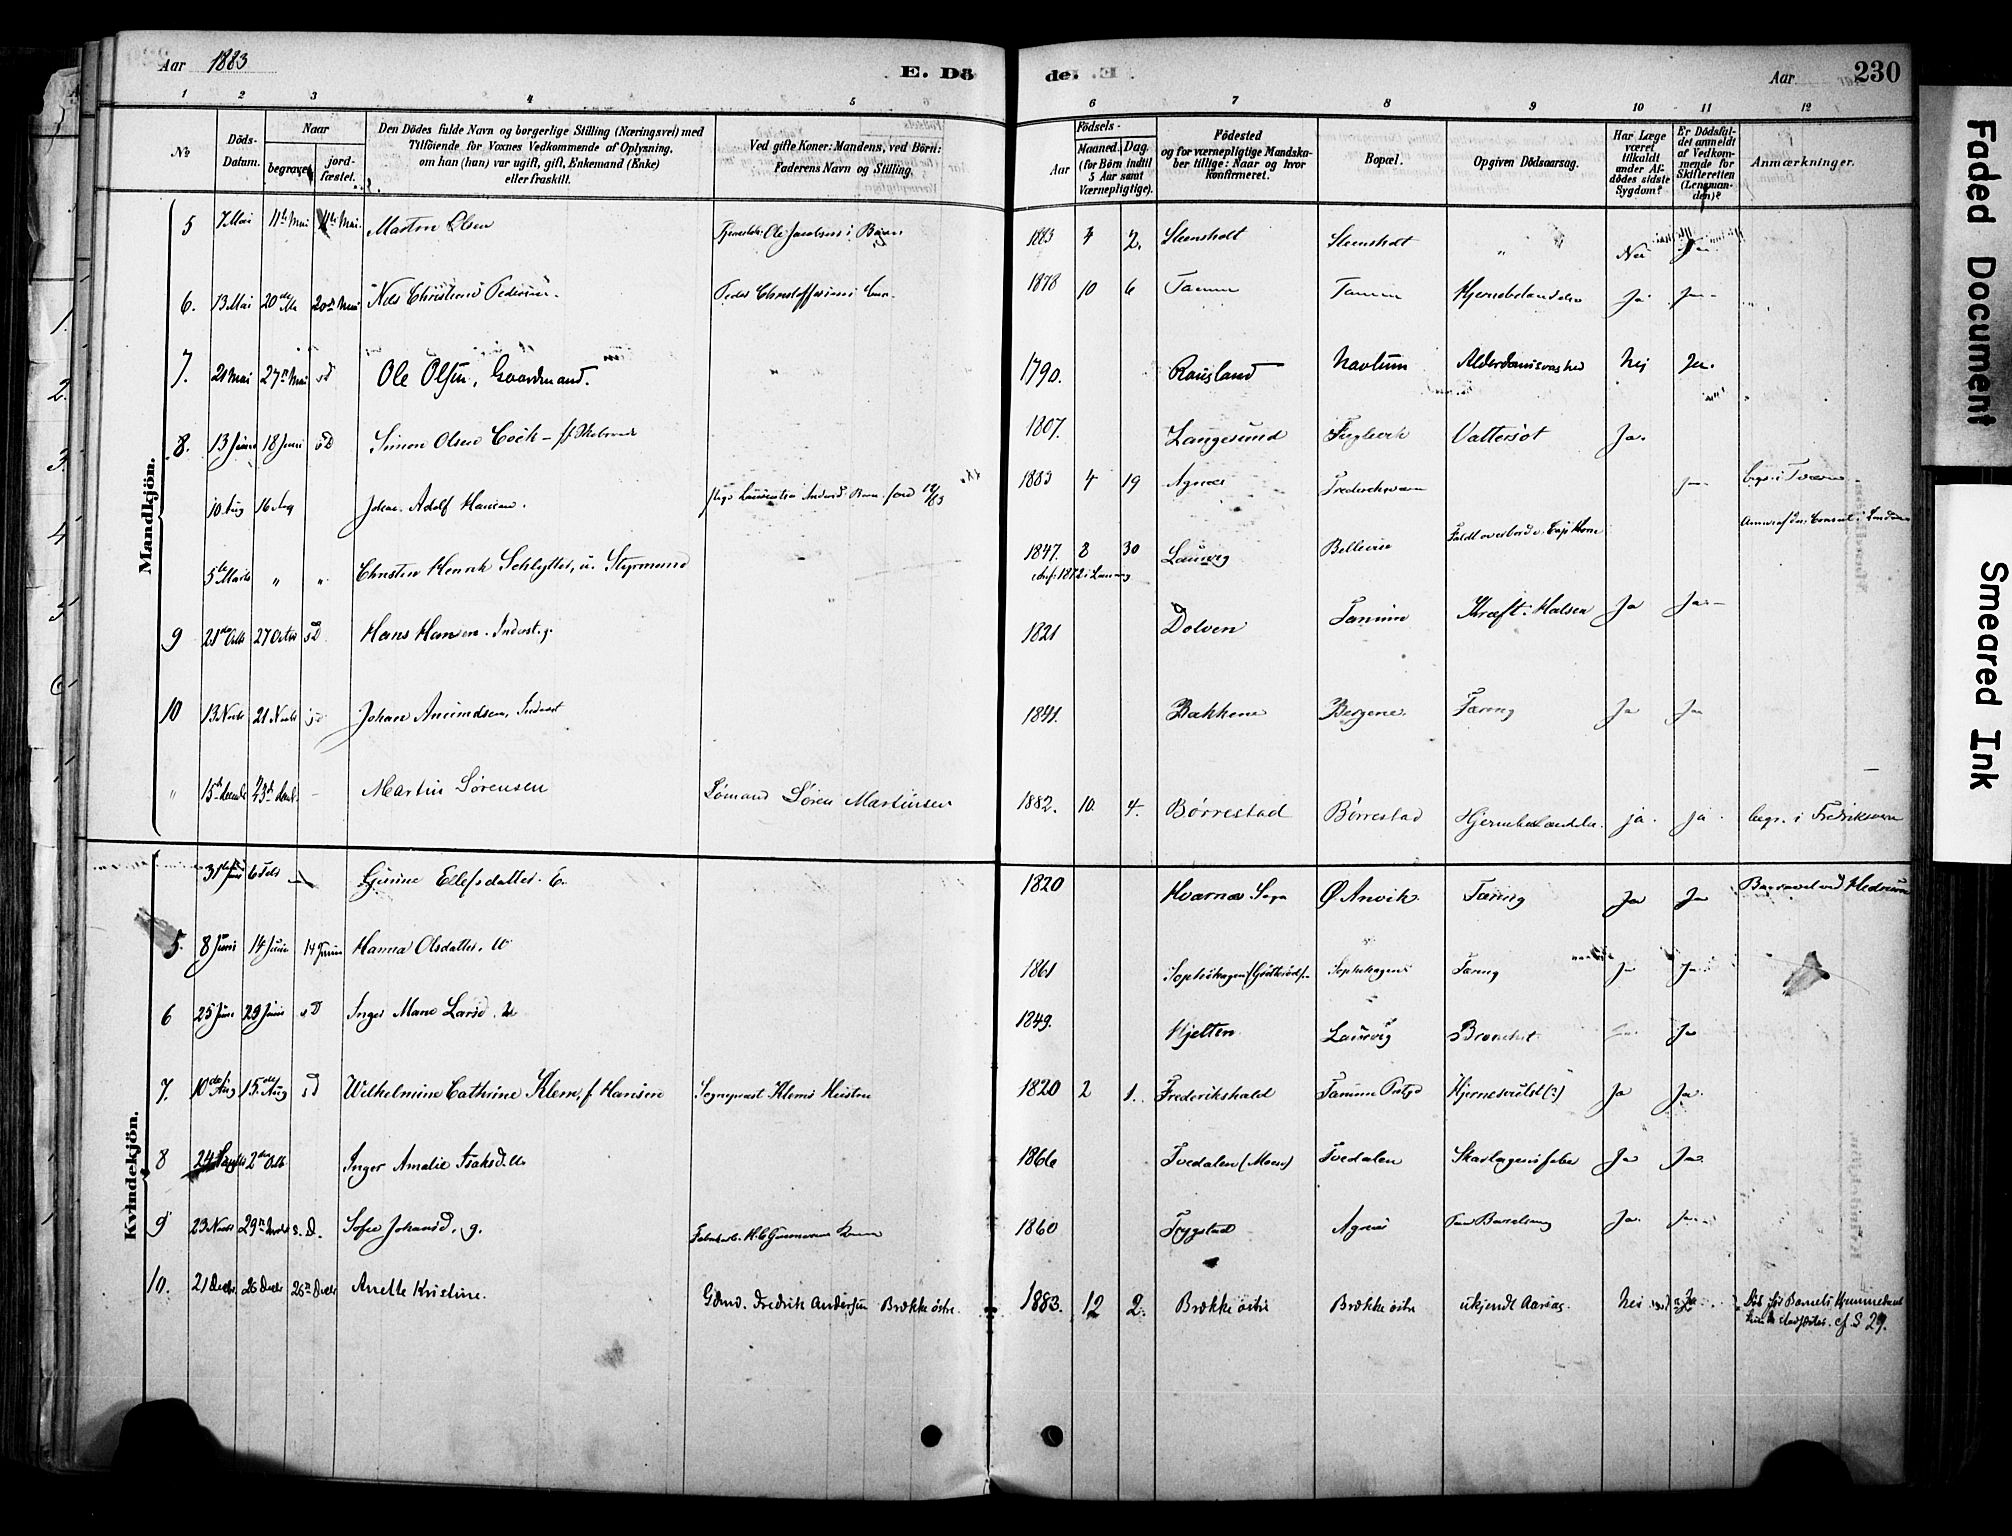 Aar 1883
E. Dö
de. E
Aar 230
1 2 3 4 5 6 7 8 9 10 11 12
No
Döds-Datum.
Naar
begravet
jordfæstet.
Den Dödes fulde Navn og borgerlige Stilling (Næringsvei) med
Tilföiende for Voxnes Vedkommende af Oplysning.
om han (hun) var ugift, gift, Enkemand (Enke)
eller fraskilt.
Ved gifte Koner: Mandens, ved Börn:
Faderens Navn og Stilling.
Födsels-
Aar
Maaned. Dag.
(for Börn indtil
5 Aar samt
Værnepligtige).
Födested
og for værnepligtige Mandska-
ber tillige: Naar og hvor
konfirmeret.
Bopæl.
Opgiven Dödsaarsag.
Har Læge
været
tilkaldt
under Af-
dödes sidste
Sygdom?
Er Dödsfal-
det anmeldt
af Vedkom-
mende for
Skifteretten
(Lensman-
den)?
Anmærkninger.
Mandkjön.
5 7 Mai 11te Mai 11te Mai Martin Olsen Ole Jacobsens Barn 1883 2. Steensholt Steensholt " Nei Ja
6. 13 Mai 20de Mai 20de Mai Nils Christian Pedersen. Peder Christoffersens 1878 10 6 Tanum Tanum Hjernebetændelse Ja Ja
7. 21 Mai 27de Mai sd Ole Olsen, Gaardmand. 1790. Rausland Navlum Alderdomssvaghed Nei Ja.
8. 13 Juni 18 Juni s D Simon Olsen Coch - f. Skolemand 1807. Langesund Fuglevik Vattersot Ja.
10 Aug 16 Aug Johan Adolf Hansen. Pige Laurentse Andersd Barn 1883 4 19 Agnes Frederiksværn Ja begr. i Tværn
5te Marts " " Christen Henrik Schlytter, u. Styrmand 1847. 8 30 Laurvig Bellevue Faldt overbord v. Cap Horn
Conf. 1862 i Laurvig
9 21de Octb 27 Octbr s D Hans Hansen. Inderst. g. 1821 Dolven Tanum Kræft i Halsen Ja Ja
10 13 Novb 21 Novb s D Johan Anundsen, Inderst 1841. Bakkene Bergene. Tæring Ja Ja
" 15de decbr 23de decb. - Martin Sørensen Sømand Søren Martinsen 1882. 10. 4. Børrestad Børrestad Hjernebetændelse. ja. ja. begr. i Fredriksværn
Kvindekjön.
31te Jan 6 Feb - Gunine Ellefsdatter. E. 1820 Kvarnes Sogn Ø Anvik. Tæring Ja Ja Begravet ved Hedrum
5. 8 Juni 14 Juni 14 Juni Hanna Olsdatter. u 1861 Sophiehagen Sophiehagen Tæring Ja Ja
6 25 Juni 29 Juni s D Inger Marie Larsd. u 1849. Hjelten Laurvig Bronchit Ja
7. 10de Aug 15de Aug sd Wilhelmine Cathrine Klem, f Hansen Sogneprest Klems Hustru 1820 2 1. Frederikshald Tanum Prstgd Hjerneslag (?) Ja Ja
8 24 Septbr 2den Octb Inger Amalie Isaksdtt. 1866 Tvedalen (Moen) Tvedalen Skarlagensfeber Ja Ja.
9 23 Novb 29de Novbr s. D. Sofie Johansd. g. 1860 Trygstad Agnes Barselseng Ja. Ja
10. 21 Decbr 26 Decbr 26de Decbr Anette Kristine. Gdmd. Fredrik Andersen Brække østre. 1883. 12 2. Brække østre Brække østre ukjendt Aarsag. Nei Ja Död før Barnets Hjemmedaab
cf. S 29.
Faded Document
Smeared Ink